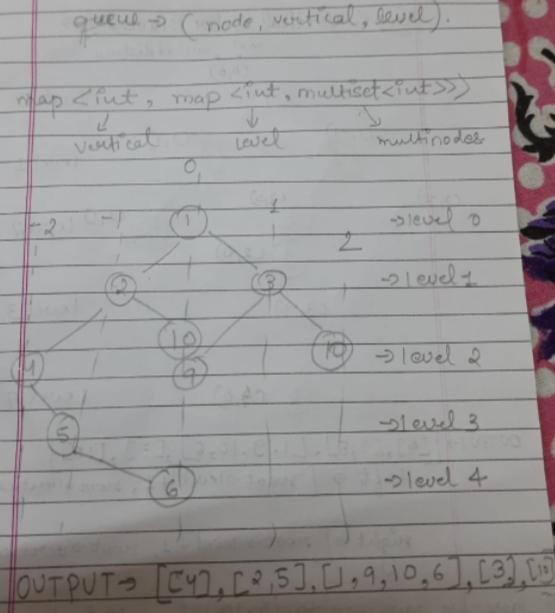 queue → (node, vertical, level).
map <int, map <int, multiset<int>>>
vertical level multinodes
0
-2 -1 1 → level 0
1
2
2 3 → level 1
10 10
4 9 → level 2
5 → level 3
6 → level 4
OUTPUT → [[4], [2,5], [1,9,10,6], [3], [10]